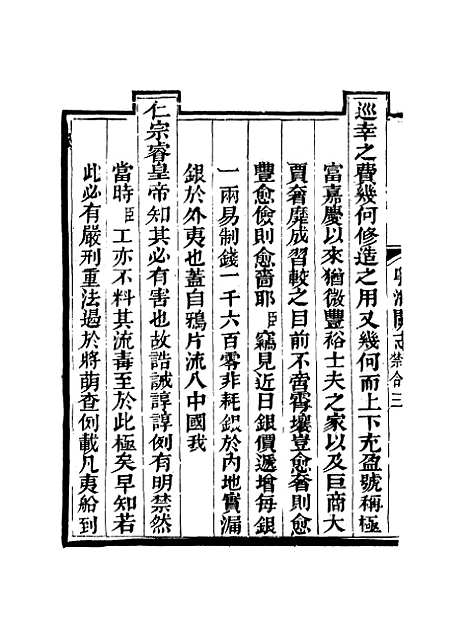 巡幸之費幾何修造之用又幾何而上下充盈號稱極
富嘉慶以來猶微豐裕士夫之家以及巨商大
賈奢靡成習較之目前不啻霄壤豈愈奢則愈
豐愈儉則愈嗇耶臣竊見近日銀價遞增每銀
一兩易制錢一千六百零非耗銀於內地實漏
銀於外夷也蓋自鴉片流入中國我
仁宗睿皇帝知其必有害也故誥誡諄諄例有明禁然
當時臣工亦不料其流毒至於此極矣早知若
此必有嚴刑重法遏於將萌查例載凡夷船到
粵海關志 禁令三